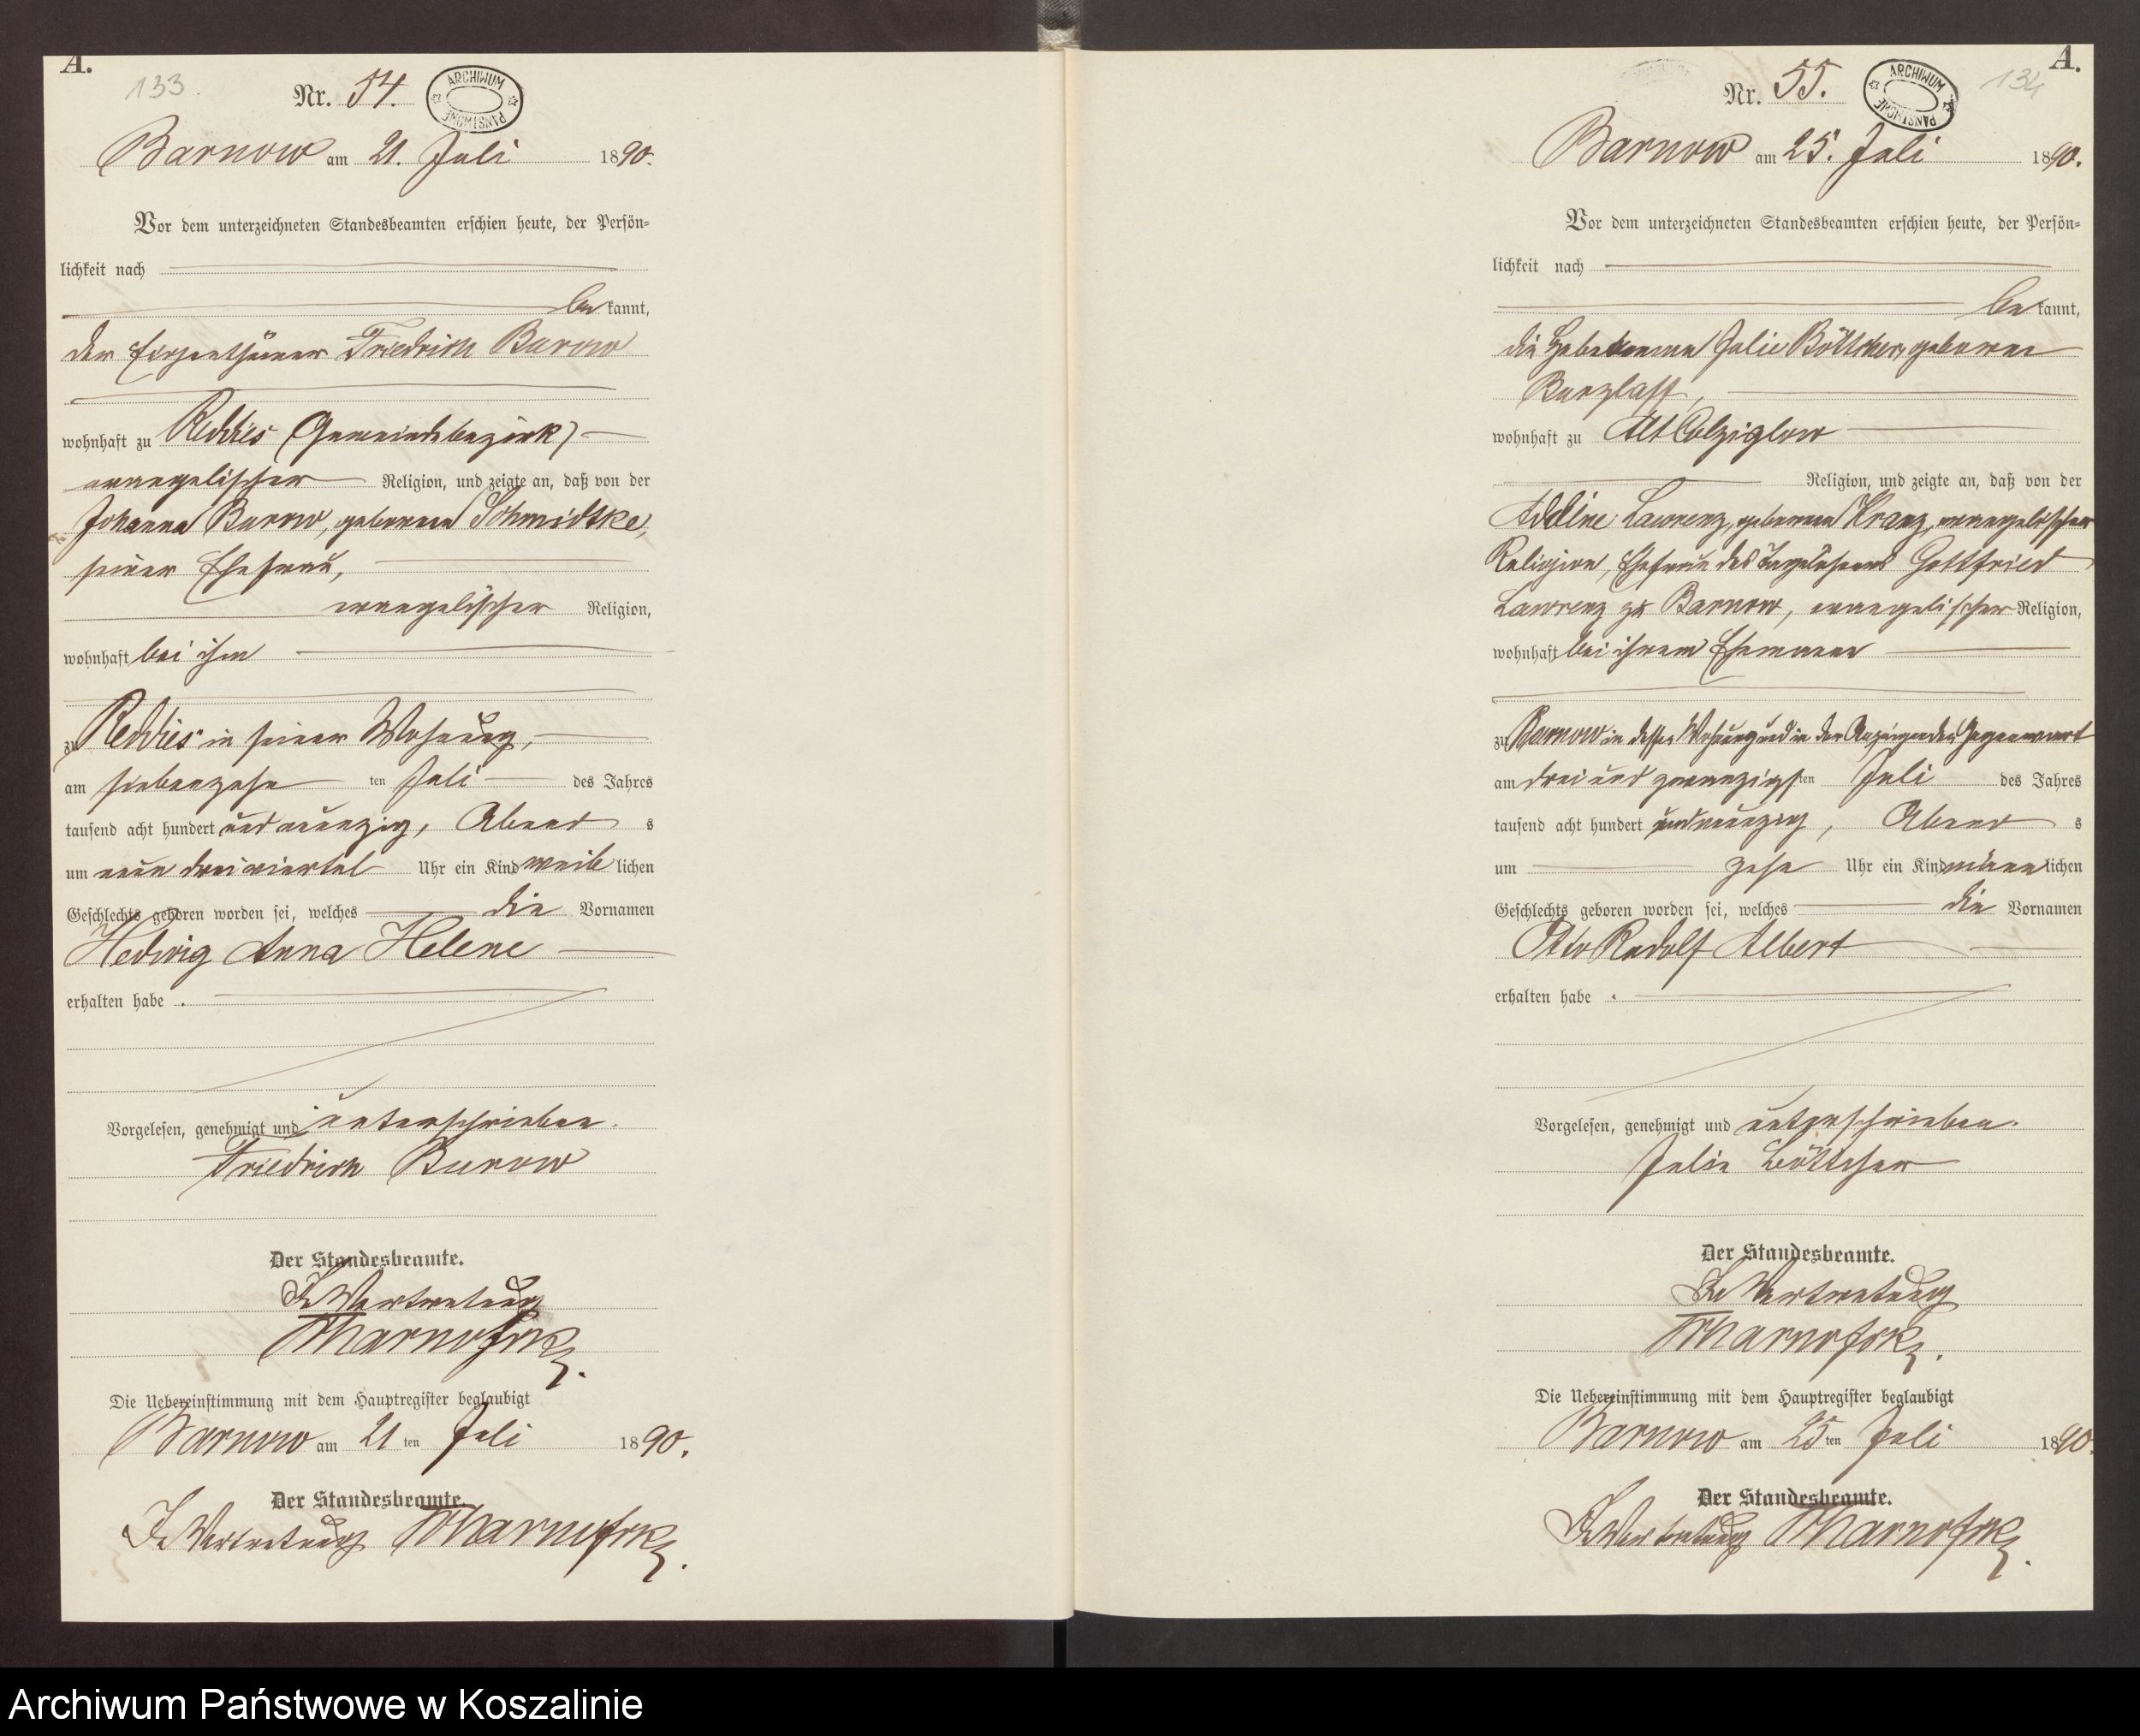 A.
133.
Nr. 54.
ARCHIWUM PAŃSTWOWE
Barnow am 21. Juli 1890.
Vor dem unterzeichneten Standesbeamten erschien heute, der Persön-
lichkeit nach
be kannt,
der Eigenthümer Friedrich Burow
wohnhaft zu Reddies (Gemeindebezirk)
evangelischer Religion, und zeigte an, daß von der
Johanna Burow, geborenen Schmidtke,
seiner Ehefrau,
evangelischer Religion,
wohnhaft bei ihm
zu Reddies in seiner Wohnung,
am siebenzehn ten Juli des Jahres
tausend acht hundert und neunzig, Abend s
um neun dreiviertel Uhr ein Kind weib lichen
Geschlechts geboren worden sei, welches die Vornamen
Hedwig Anna Helene
erhalten habe.
Vorgelesen, genehmigt und unterschrieben.
Friedrich Burow
Der Standesbeamte.
In Vertretung
Die Uebereinstimmung mit dem Hauptregister beglaubigt
Barnow am 21 ten Juli 1890.
Der Standesbeamte.
In Vertretung
A.
134
Nr. 55.
ARCHIWUM PAŃSTWOWE
Barnow am 25. Juli 1890.
Vor dem unterzeichneten Standesbeamten erschien heute, der Persön-
lichkeit nach
be kannt,
die Hebeamme Julie Böttcher, geborene
Burzlaff,
wohnhaft zu Alt Colziglow
Religion, und zeigte an, daß von der
Adeline Lawrenz, geborenen Kranz, evangelischer
Religion, Ehefrau des Tagelöhners Gottfried
Lawrenz zu Barnow, evangelischer Religion,
wohnhaft bei ihrem Ehemann
zu Barnow in dessen Wohnung und in der Anzeigenden Gegenwart
am drei und zwanzigsten Juli des Jahres
tausend acht hundert und neunzig, Abend s
um zehn Uhr ein Kind männ lichen
Geschlechts geboren worden sei, welches die Vornamen
Otto Rudolf Albert
erhalten habe.
Vorgelesen, genehmigt und unterschrieben.
Julie Böttcher
Der Standesbeamte.
In Vertretung
Die Uebereinstimmung mit dem Hauptregister beglaubigt
Barnow am 25 ten Juli 1890.
Der Standesbeamte.
In Vertretung
Archiwum Państwowe w Koszalinie